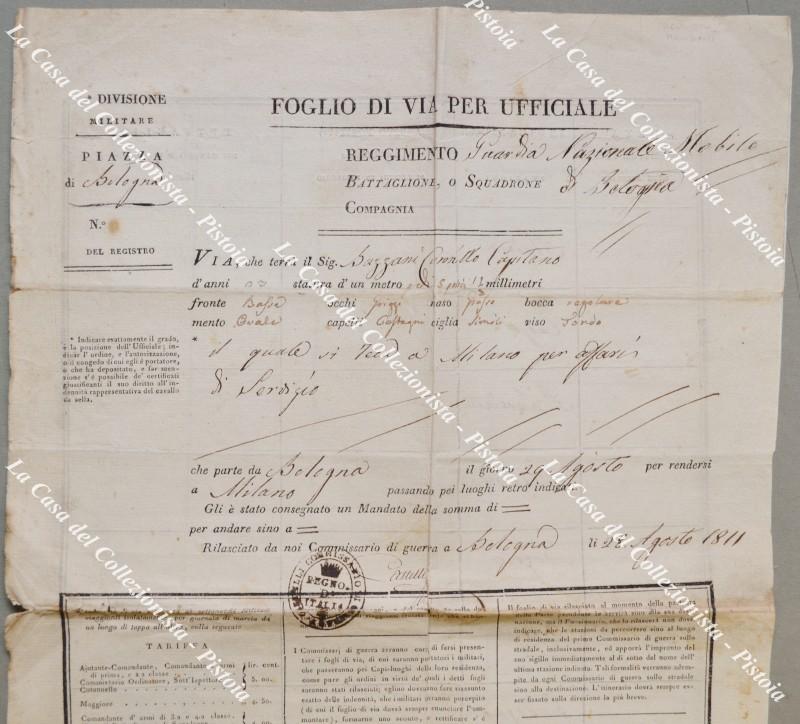 * DIVISIONE
MILITARE
PIAZZA
di Bologna
N.º
DEL REGISTRO
FOGLIO DI VIA PER UFFICIALE
REGGIMENTO Guardia Nazionale Mobile
BATTAGLIONE, O SQUADRONE di Bologna
COMPAGNIA
VIA, che terrà il Sig. Capitano
d'anni statura d'un metro millimetri
fronte Bassa occhi Griggi naso grosso bocca regolare
mento Ovale capelli Castagni ciglia Simili viso Tondo
* Indicare esattamente il grado,
e la posizione dell'Ufficiale; in-
dicar l'ordine, e l'autorizzazione,
o il congedo di cui egli è portatore,
o che ha depositato, e far men-
zione s'è possibile de' certificati
giustificanti il suo diritto all'in-
dennità rappresentativa del cavallo
da sella.
* il quale si reca a Milano per affari
di Servigio
che parte da Bologna il giorno 29 Agosto per rendersi
a Milano passando pei luoghi retro indicati
Gli è stato consegnato un Mandato della somma di
per andare sino a
Rilasciato da noi Commissario di guerra a Bologna li 28 Agosto 1811
COMMISSARIO DI
REGNO
D'
ITALIA
viaggianti isolatamente per giornata di marcia da
un luogo di tappa all'altro, colla seguente
TARIFFA
Ajutante-Comandante, Comandante d'armi
di prima, e 2.a classe
lir. cent.
Commissario Ordinatore, Sott'Ispettore
Colonnello
5. 00.
Maggiore 4. 50.
Comandante d'armi di 3.a e 4.a classe.
I Commissarj di guerra avranno cura di farsi presentare
i fogli di via, di cui saranno portatori i militari,
che passeranno pei Capi-luoghi della loro residenza,
come pure gli ordini in virtù de' quali i detti fogli
saranno stati rilasciati; eglino dovranno fare riassunto
esatto delle indennità, che i militari avranno percepite
(di cui il foglio di via dovrà sempre enunciare l'am-
montare), formarne uno sconto, e rettificare s'è
Il foglio di via rilasciato al momento della par-
tenza dovrà
nazione, ma il Commissario, che lo rilascerà non dovrà
indicare, che le stazioni da percorrersi sino al luogo
di residenza del primo Commissario di guerra sullo
stradale, inclusivamente, ed apporrà l'impronto del
suo sigillo immediatamente al di sotto del nome dell'
ultima stazione indicata. Tali formalità verranno adem-
pite da ogni Commissario di guerra sullo stradale
sino alla destinazione. L'itinerario dovrà sempre es-
sere fissato sulla direzione la più breve.
La Casa del Collezionista - Pistoia
La Casa del Collezionista - Pistoia
La Casa del Collezionista - Pistoia
La Casa del Collezionista - Pistoia
La Casa del Collezionista - Pistoia